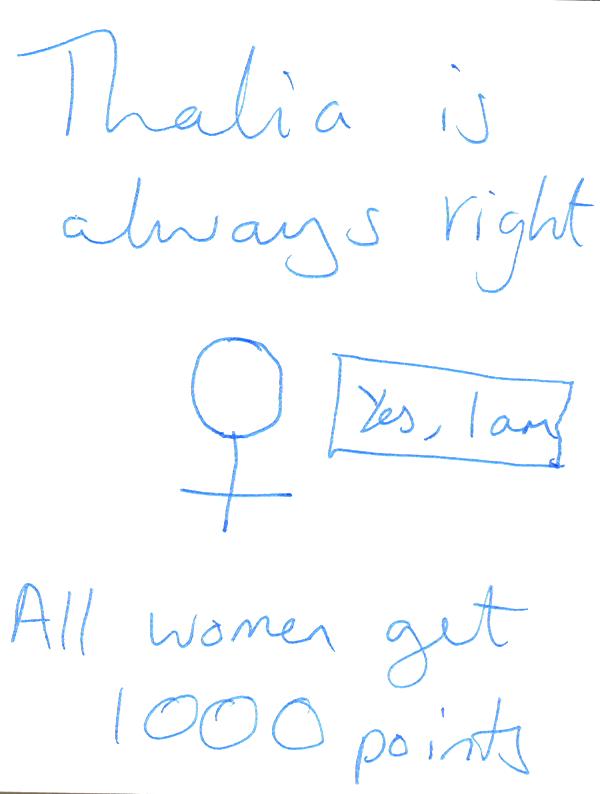 Thalia is
always right
Yes, I am
All women get
1000 points